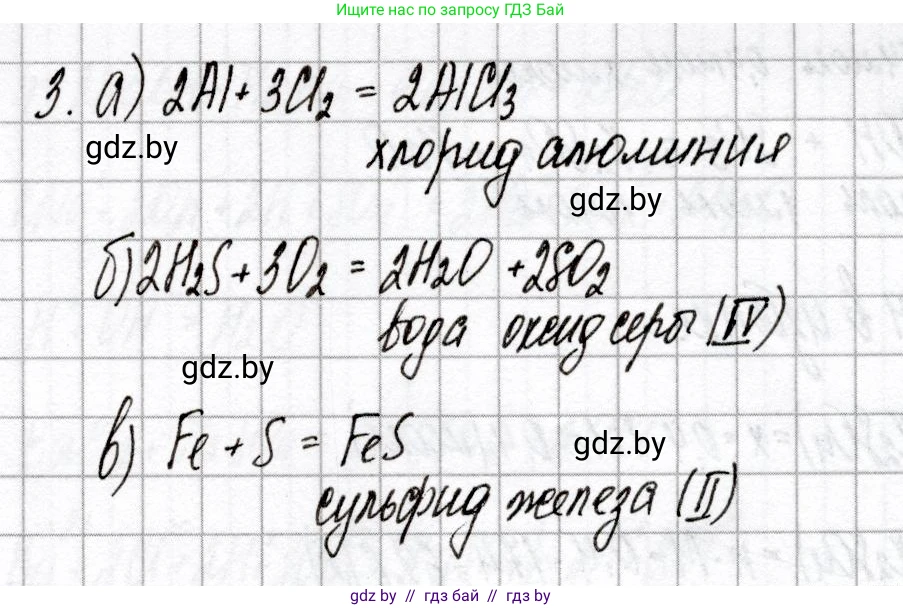 Ищите нас по запросу ГДЗ Бай
3. а) 2Al + 3Cl₂ = 2AlCl₃
gdz.by
хлорид алюминия
gdz.by
б) 2H₂S + 3O₂ = 2H₂O + 2SO₂
вода оксид серы (IV)
gdz.by
в) Fe + S = FeS
gdz.by
сульфид железа (II)
gdz.by // гдз бай // гдз by